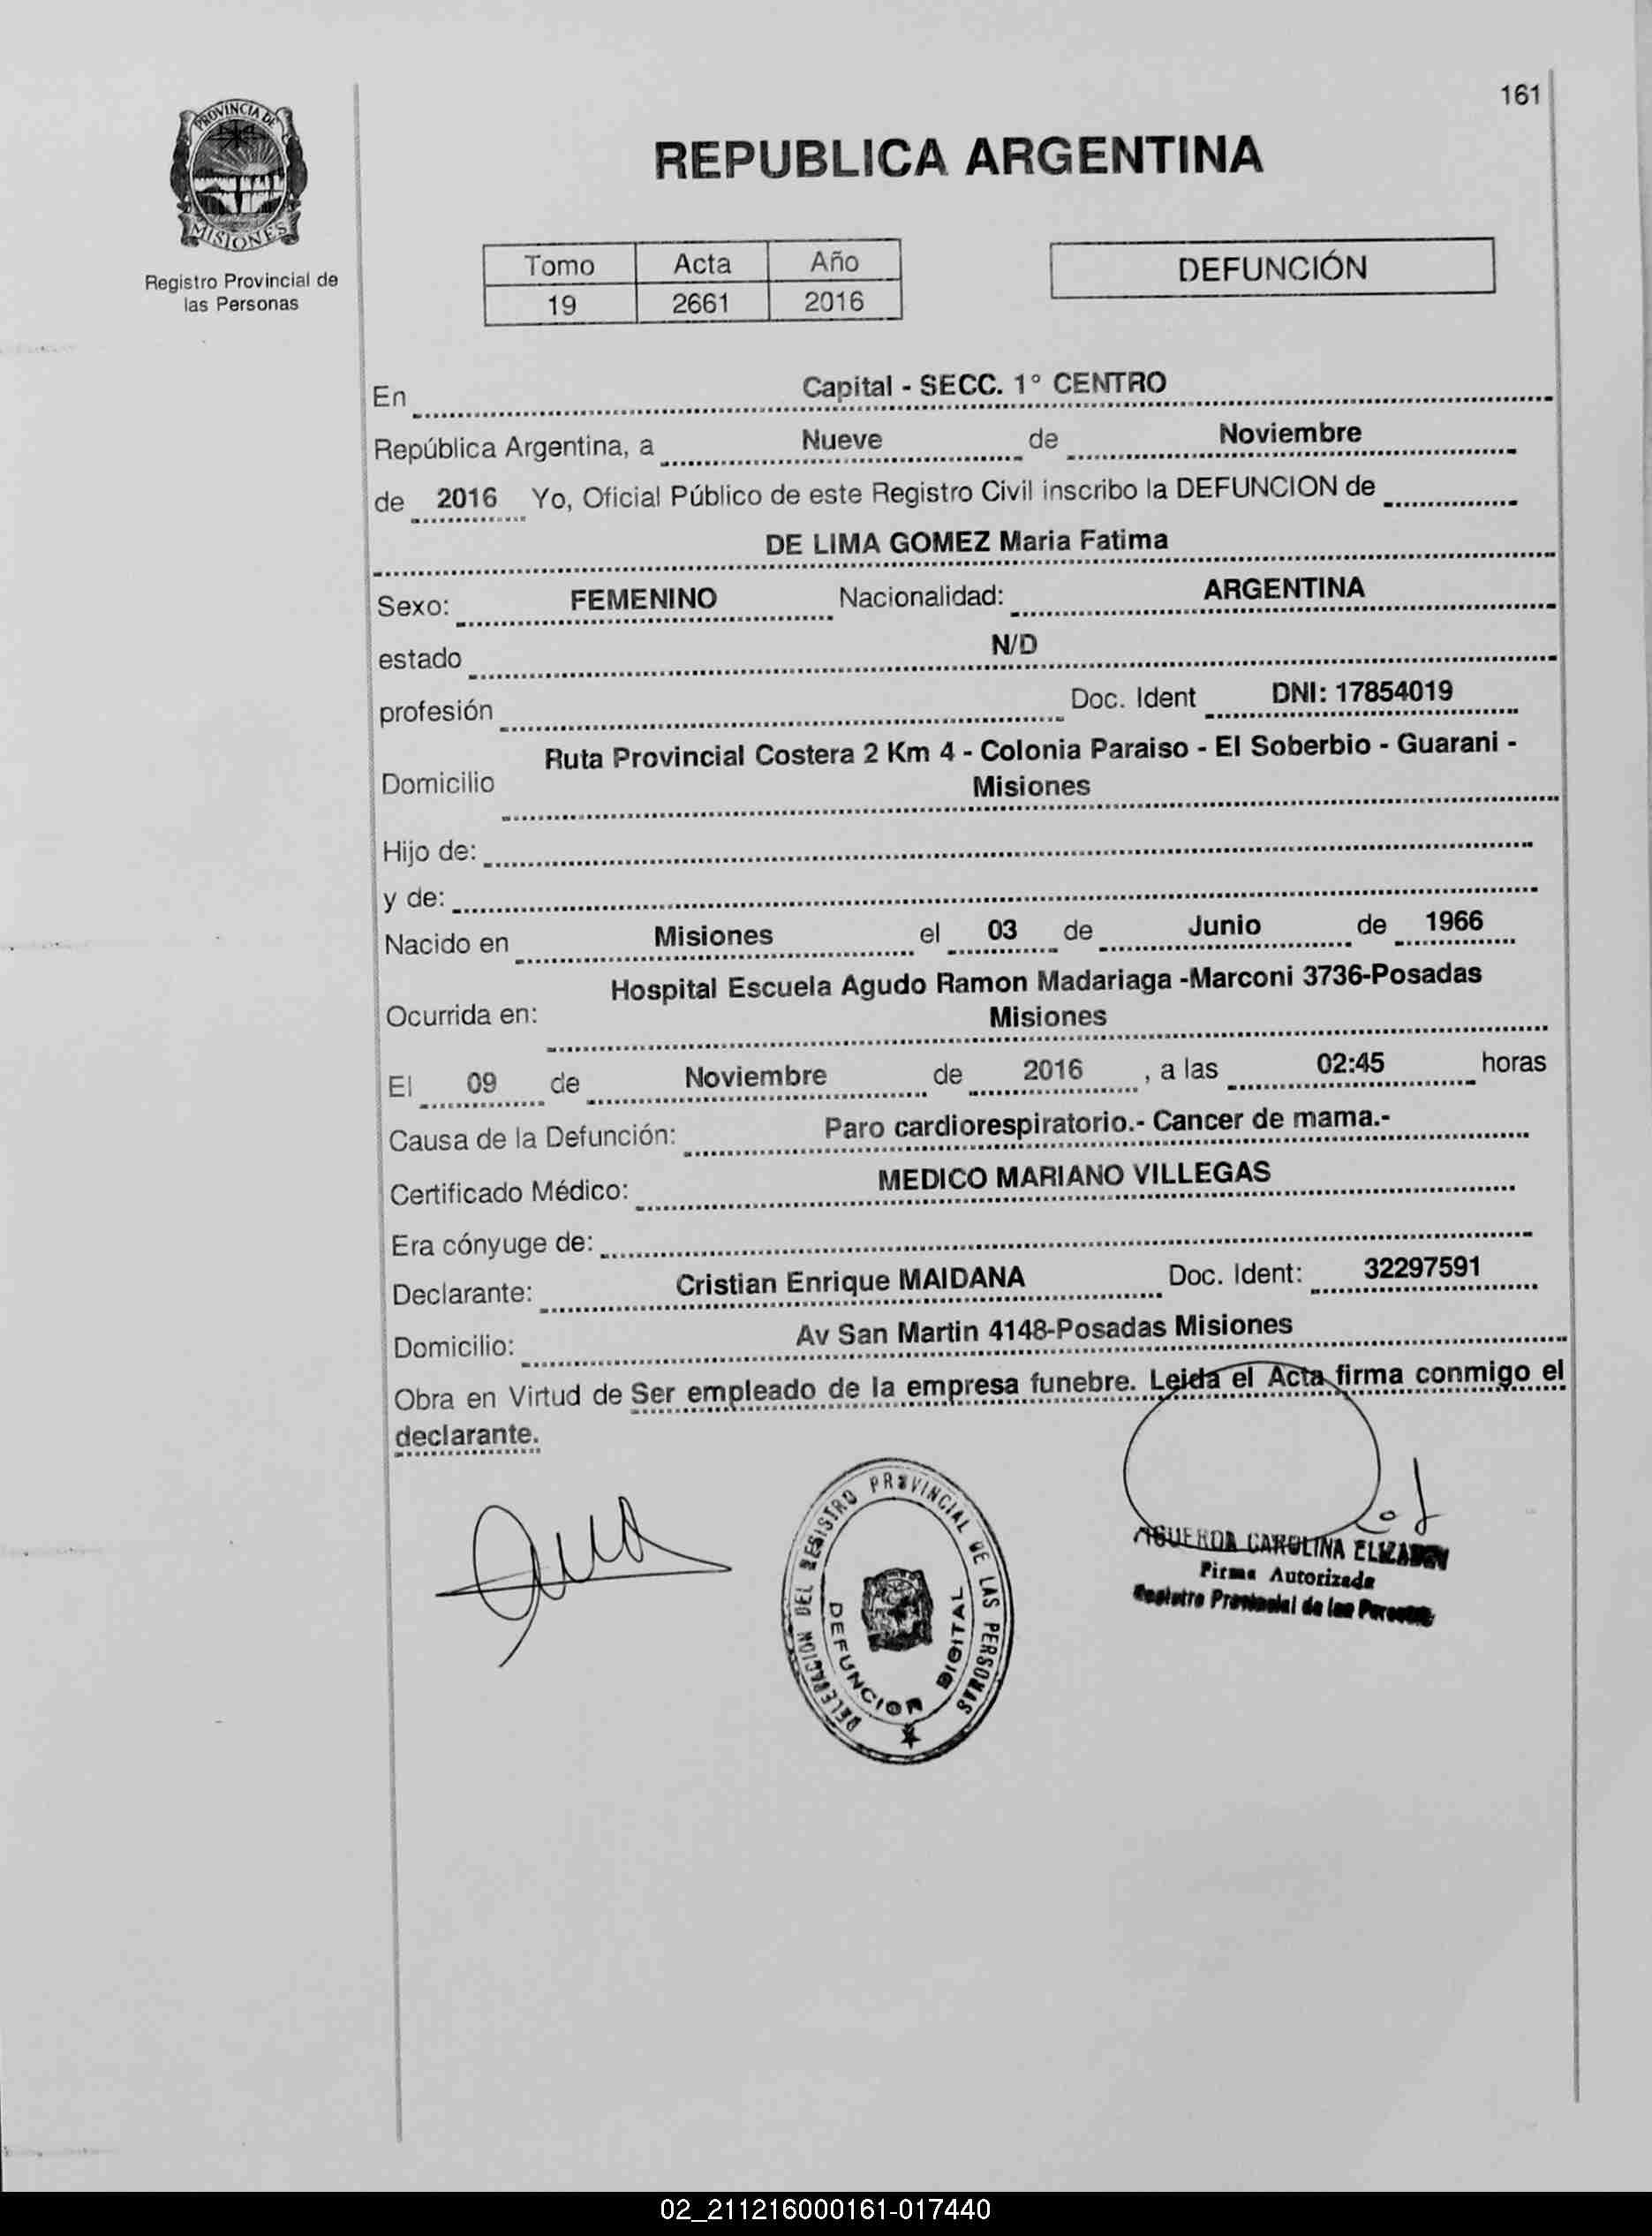 161
PROVINCIA DE
MISIONES
Registro Provincial de
las Personas
REPUBLICA ARGENTINA
Tomo Acta Año
19 2661 2016
DEFUNCIÓN
En Capital - SECC. 1° CENTRO
República Argentina, a Nueve de Noviembre
de 2016 Yo, Oficial Público de este Registro Civil inscribo la DEFUNCION de
DE LIMA GOMEZ Maria Fatima
Sexo: FEMENINO Nacionalidad: ARGENTINA
estado N/D
profesión Doc. Ident DNI: 17854019
Ruta Provincial Costera 2 Km 4 - Colonia Paraiso - El Soberbio - Guarani -
Domicilio Misiones
Hijo de:
y de:
Nacido en Misiones el 03 de Junio de 1966
Hospital Escuela Agudo Ramon Madariaga -Marconi 3736-Posadas
Ocurrida en: Misiones
El 09 de Noviembre de 2016 , a las 02:45 horas
Causa de la Defunción: Paro cardiorespiratorio.- Cancer de mama.-
Certificado Médico: MEDICO MARIANO VILLEGAS
Era cónyuge de:
Declarante: Cristian Enrique MAIDANA Doc. Ident: 32297591
Domicilio: Av San Martin 4148-Posadas Misiones
Obra en Virtud de Ser empleado de la empresa funebre. Leida el Acta firma conmigo el
declarante.
DELEGACION DEL REGISTRO PROVINCIAL DE LAS PERSONAS
DEFUNCION DIGITAL
CAROLINA
Firma Autorizada
Registro Provincial de las Personas
02_211216000161-017440